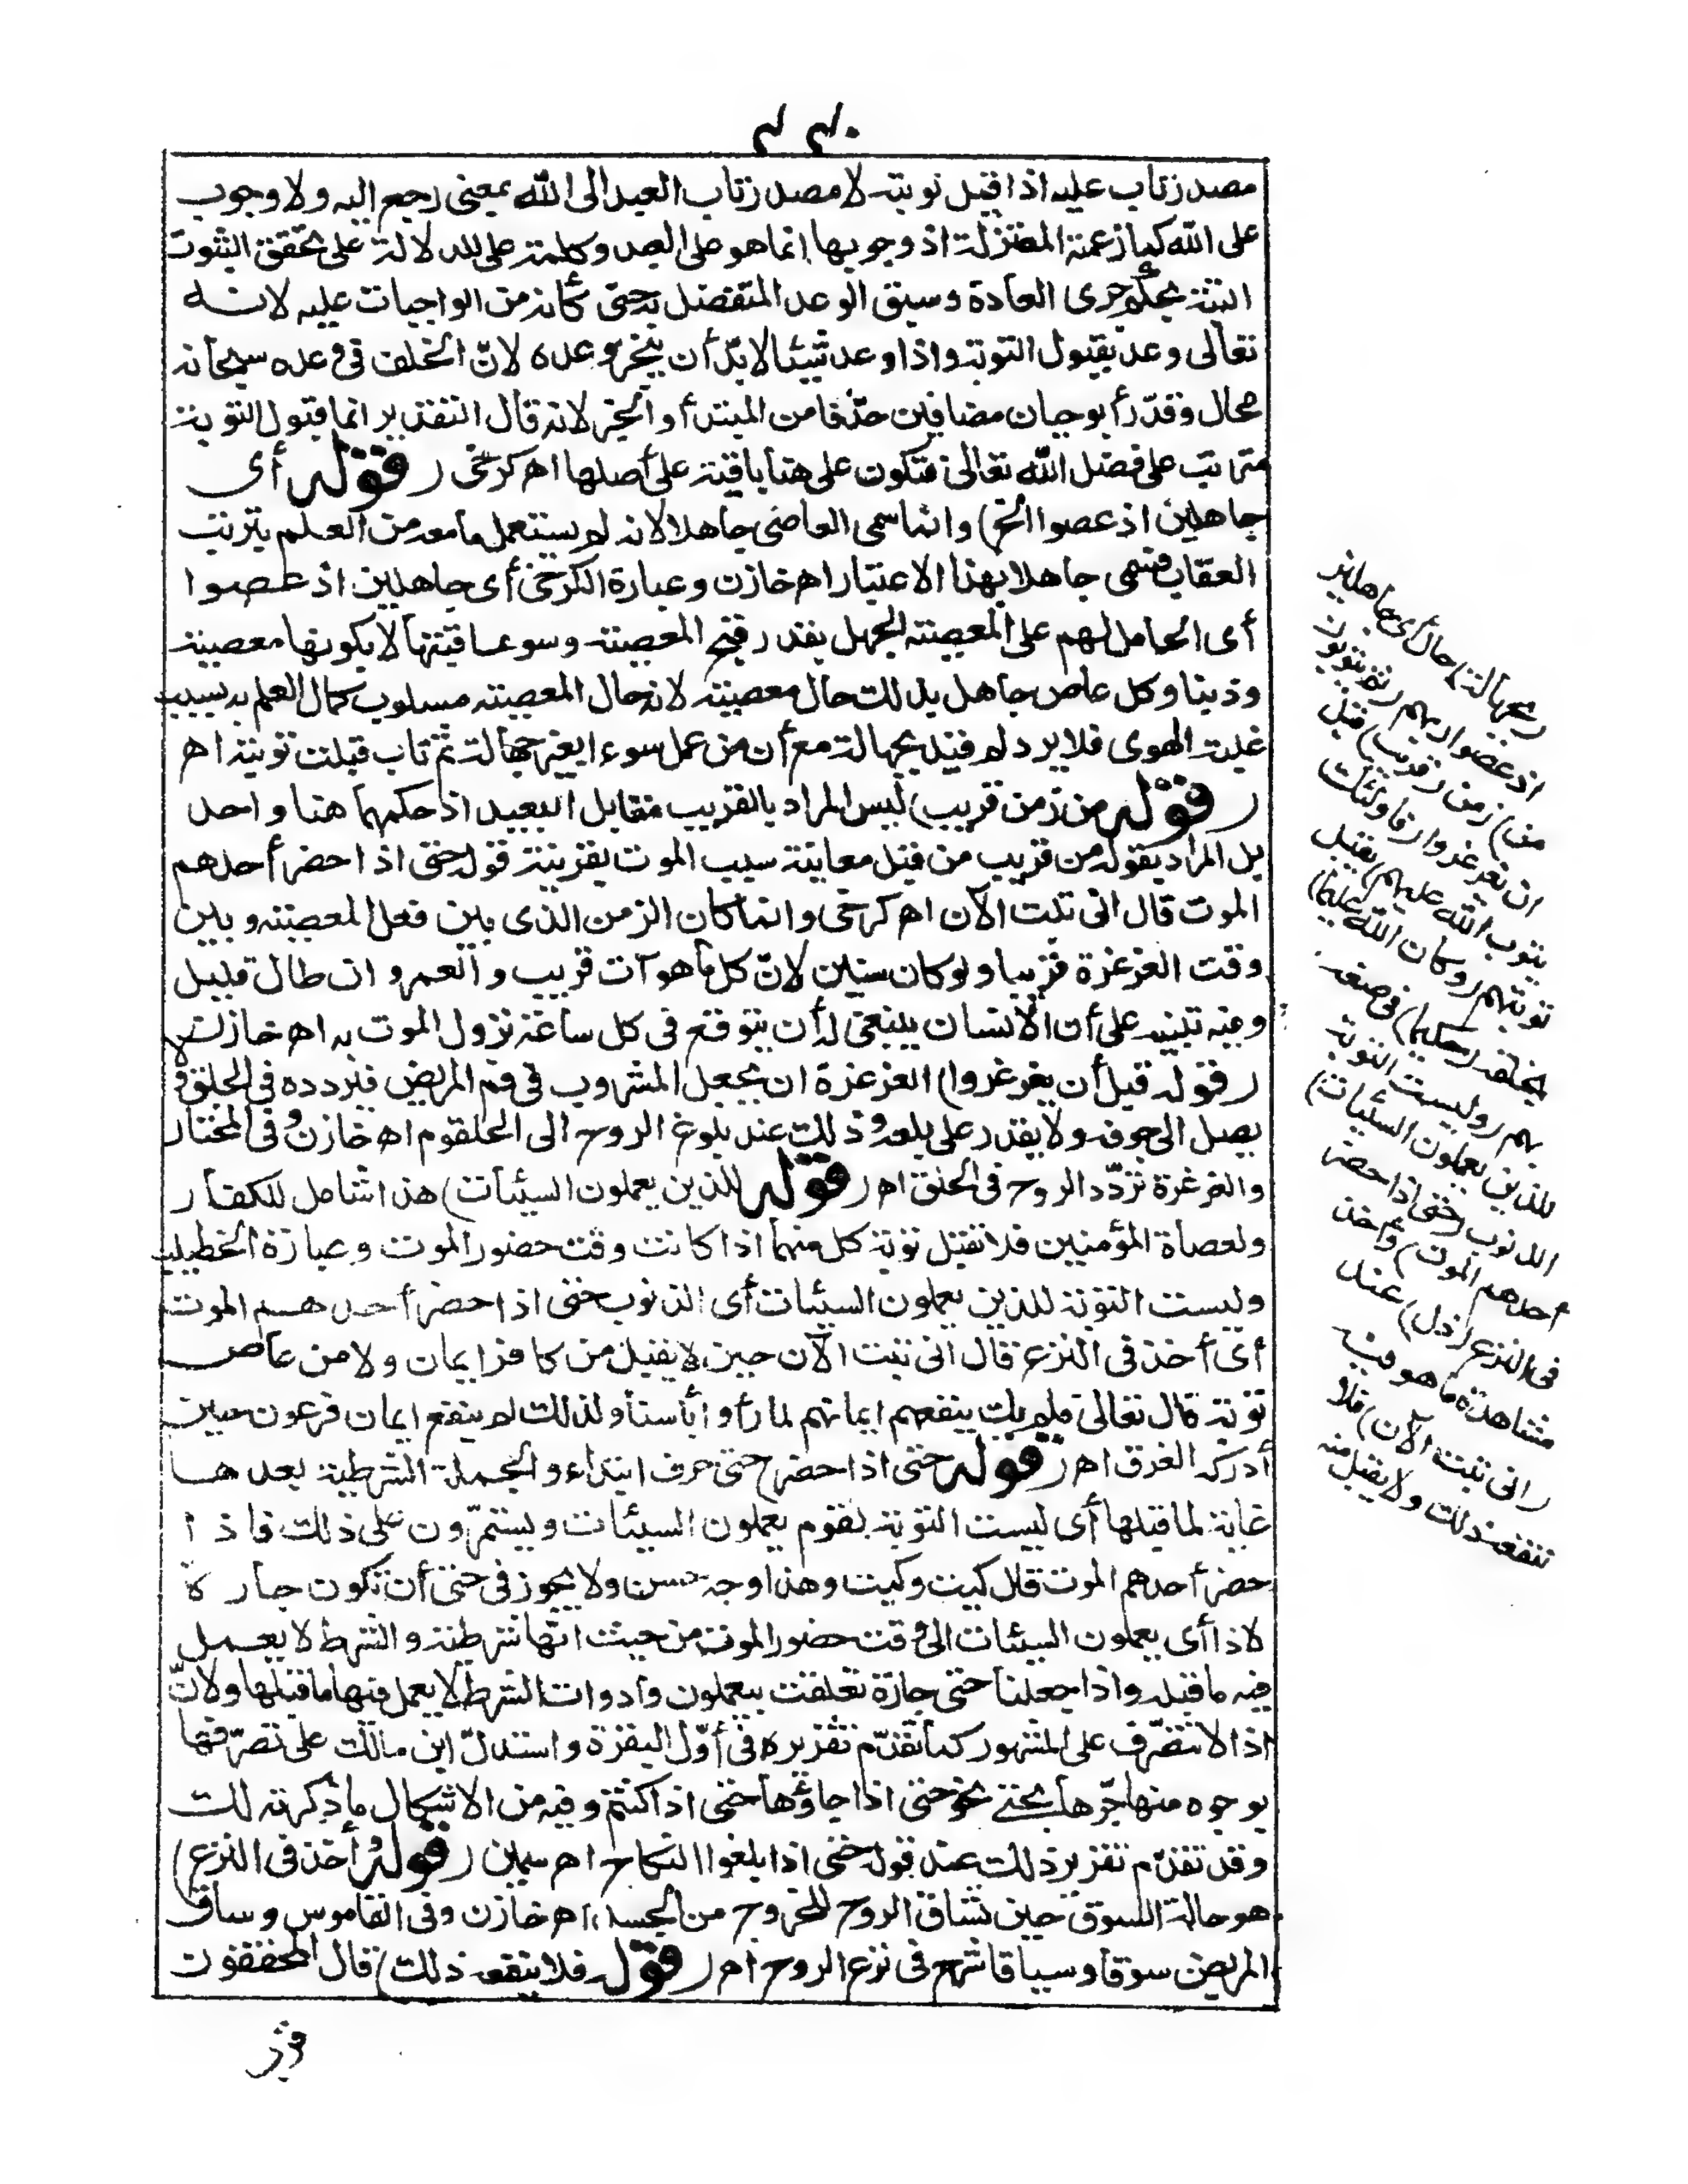 ٤٤٠
مصدر تاب عليه اذا قبل توبته لا مصدر تاب العبد الى الله بمعنى رجع اليه ولا وجوب
على الله كما زعمت المعتزلة اذ وجوبها انما هو على العبد وكلمة على للدلالة على تحقق الثبوت
البتة بحكم جرى العادة وسبق الوعد المتفضل به حتى كأنه من الواجبات عليه لانه
تعالى وعد بقبول التوبة واذا وعد شيئا لابد أن ينجز وعده لان الخلف فى وعده سبحانه
محال وقدر أبو حيان مضافين حذفا من المبتدأ والخبر لانه قال التقدير انما قبول التوبة
مترتب على فضل الله تعالى فتكون على هنا باقية على أصلها اهـ كرخى (قوله أى
جاهلين اذ عصوا الخ) وانما سمى العاصى جاهلا لانه لم يستعمل ما معه من العلم بترتب
العقاب فسمى جاهلا بهذا الاعتبار اهـ خازن وعبارة الكرخى أى جاهلين اذ عصوا
أى الحامل لهم على المعصية الجهل بقدر قبح المعصية وسوء عاقبتها لا بكونها معصية
وذنبا وكل عاص جاهل بذلك حال معصيته لانه حال المعصية مسلوب كمال العلم به بسبب
غلبة الهوى فلا يرد لم قيد بجهالة مع أن من عمل سوءا بغير جهالة ثم تاب قبلت توبته اهـ
(قوله من زمن قريب) ليس المراد بالقريب مقابل البعيد اذ حكمهما هنا واحد
بل المراد بقوله من قريب من قبل معاينة سبب الموت بقرينة قوله حتى اذا حضر أحدهم
الموت قال انى تبت الآن اهـ كرخى وانما كان الزمن الذى بين فعل المعصية وبين
وقت الغرغرة قريبا ولو كان سنين لان كل ما هو آت قريب والعمر وان طال قليل
وفيه تنبيه على أن الانسان ينبغى له أن يتوقع فى كل ساعة نزول الموت به اهـ خازن
(قوله قبل أن يغرغروا) الغرغرة ان يجعل المشروب فى فم المريض فيردده فى الحلق ولا
يصل الى جوفه ولا يقدر على بلعه وذلك عند بلوغ الروح الى الحلقوم اهـ خازن وفى المختار
والغرغرة تردد الروح فى الحلق اهـ (قوله للذين يعملون السيئات) هذا شامل للكفار
ولعصاة المؤمنين فلا تقبل توبة كل منهما اذا كانت وقت حضور الموت وعبارة الخطيب
وليست التوبة للذين يعملون السيئات أى الذنوب حتى اذا حضر أحدهم الموت
أى أخذ فى النزع قال انى تبت الآن حين لا يقبل من كافر ايمان ولا من عاص
توبة قال تعالى فلم يك ينفعهم ايمانهم لما رأوا بأسنا ولذلك لم ينفع ايمان فرعون حين
أدركه الغرق اهـ (قوله حتى اذا حضر) حتى حرف ابتداء والجملة الشرطية بعدها
غاية لما قبلها أى ليست التوبة لقوم يعملون السيئات ويستمرون على ذلك فاذا
حضر أحدهم الموت قال كيت وكيت وهذا وجه حسن ولا يجوز فى حتى أن تكون جارة
لاذا أى يعملون السيئات الى وقت حضور الموت من حيث انها شرطية والشرط لا يعمل
فيه ما قبله واذا جعلنا حتى جارة تعلقت بيعملون وأدوات الشرط لا يعمل فيها ما قبلها ولان
اذا لا تتصرف على المشهور كما تقدم تقريره فى أول البقرة واستدل ابن مالك على تصرفها
بوجوه منها جرها بحتى نحو حتى اذا جاؤها حتى اذا كنتم وفيه من الاشكال ما ذكرته لك
وقد تقدم تقرير ذلك عند قوله حتى اذا بلغوا النكاح اهـ سمين (قوله وأخذ فى النزع)
هو حالة السوق حين تساق الروح للخروج من الجسد اهـ خازن وفى القاموس وساق
المريض سوقا وسياقا شرع فى نزع الروح اهـ (قوله فلا ينفعه ذلك) قال المحققون
(بجهالة) حال أى جاهلين
اذ عصوا ربهم (ثم يتوبون
من) زمن (قريب) قبل
ان يغرغروا (فأولئك
يتوب الله عليهم) يقبل
توبتهم (وكان الله عليما)
بخلقه (حكيما) فى صنعه
بهم (وليست التوبة
للذين يعملون السيئات)
الذنوب (حتى اذا حضر
أحدهم الموت) وأخذ
فى النزع (قال) عند
مشاهدة ما هو فيه
(انى تبت الآن) فلا
ينفعه ذلك ولا يقبل منه